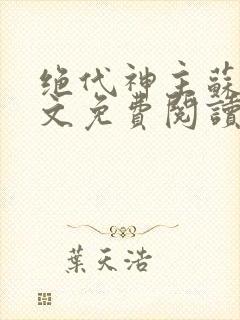 绝代神主蘇
文免費閱讀
葉天浩